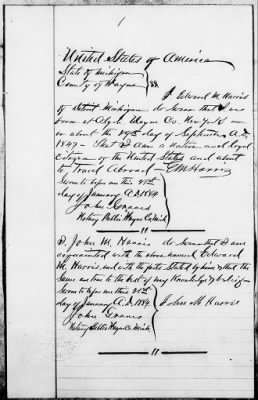 1
United States of America
State of Michigan
County of Wayne } SS.
I Edward M. Harris
of Detroit Michigan do swear that I was
born at Clyde Wayne Co. New York on
or about the 19th day of September A.D.
1847 - That I am a native and loyal
citizen of the United States and about
to Travel Abroad - E M Harris
Sworn to before me this
day of January A.D. 1884
John Graves
Notary Public Wayne Co. Mich
"
I, John M. Harris do swear that I am
acquainted with the above named Edward
M. Harris, and with the facts Stated by him & that the
same are true to the best of my Knowledge & belief -
Sworn to before me this
day of January A.D. 1884 John M Harris
John Graves
Notary Public Wayne Co. Mich.
"